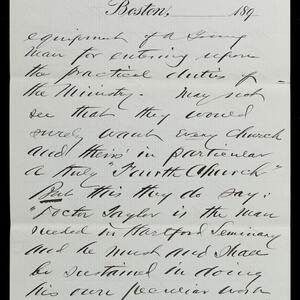 Boston, 189
equipment of a Young
Man for entering upon
the practical duties of
the Ministry. May not
see that they would
surely want every Church
and theirs in particular
a truly "Fourth Church"
But this they do say:
"Doctor Taylor is the man
needed in Hartford Seminary
and he must and shall
be sustained in doing
his own peculiar work